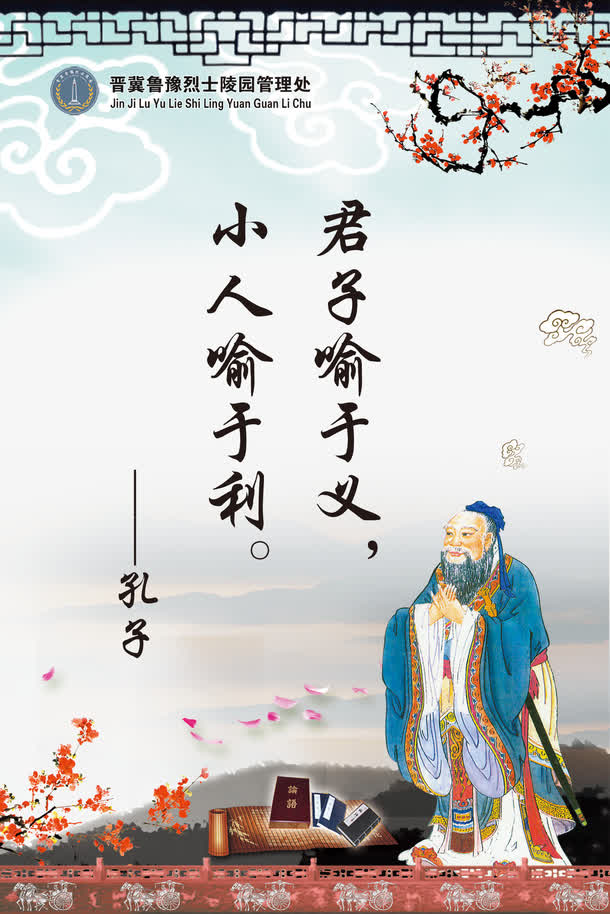 晋冀鲁豫烈士陵园管理处
Jin Ji Lu Yu Lie Shi Ling Yuan Guan Li Chu
君子喻于义，
小人喻于利。
——孔子
論語